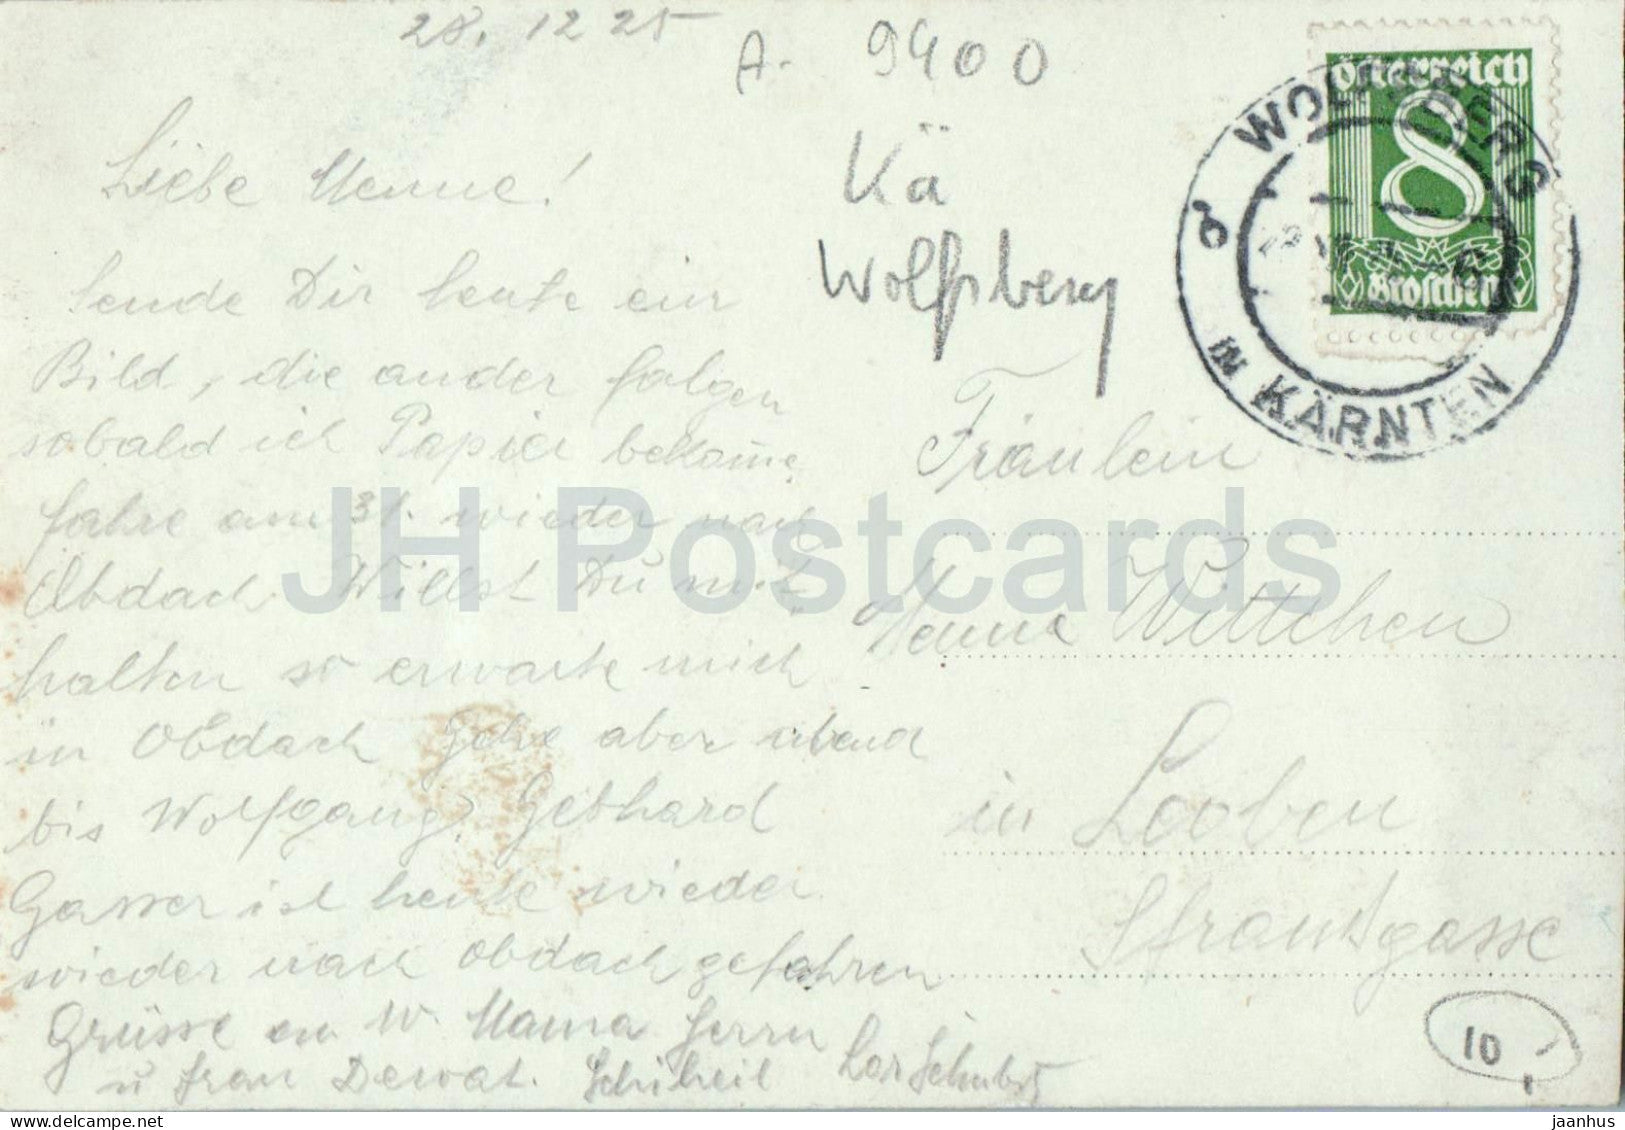 28. 12 25
A- 9400
Kä
Wolfsberg
Österreich
8
Groschen
WOLFSBERG
IN KÄRNTEN
Liebe Menne!
Sende Dir heute ein
Bild, die ander folgen
sobald ich Papier bekome,
fahre am 31. wieder nach
Obdach Willst Du mit
halten so erwarte mich
in Obdach Gehe aber
bis Wolfgang. Gebhard
Gasser ist heute wieder
wieder nach Obdach gefahren
Grüsse an W. Mama Herrn
u Frau Dewat. Schiheil
Fräulein
Menne Wittchen
in Looben
10
JH Postcards
jaanhus